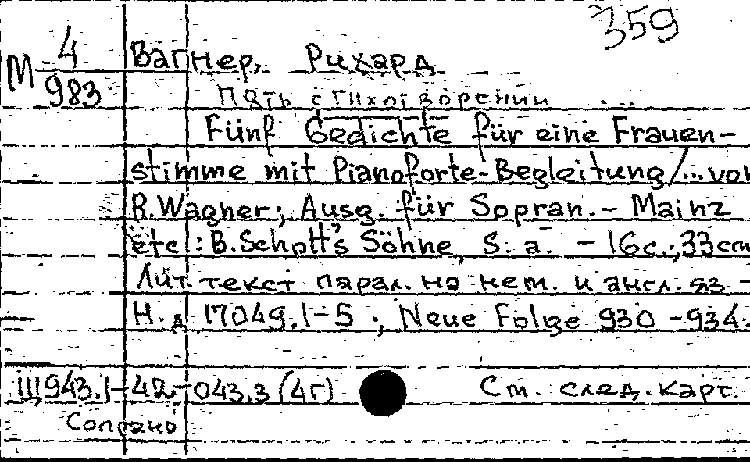 359
М 4/983
Вагнер, Рихард
Пять стихотворений ...
Fünf Gedichte für eine Frauen-
stimme mit Pianoforte-Begleitung/...von
R.Wagner; Ausg. für Sopran.- Mainz
etc.: B.Schott's Söhne, S. a. - 16с.; 33cm
Лит. текст парал. на нем. и англ. яз -
Н. д. 17049.1-5 ; Neue Folge 930 -934.
Ш943.1-42-043.3 (4Г) См. след. карт.
Сопрано